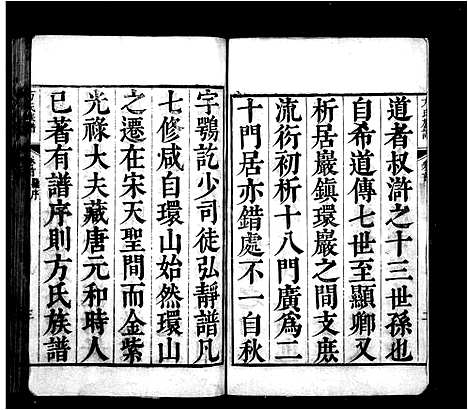 道者叔滸之十三世孫也
自希道傳七世至顯卿又
析居巖鎮環巖之間支庶
流衍初析十八門廣爲二
十門居亦錯處不一自秋
宇鶚訖少司徒弘靜譜凡
七修咸自環山始然環山
之遷在宋天聖間而金紫
光祿大夫藏唐元和時人
已著有譜序則方氏族譜